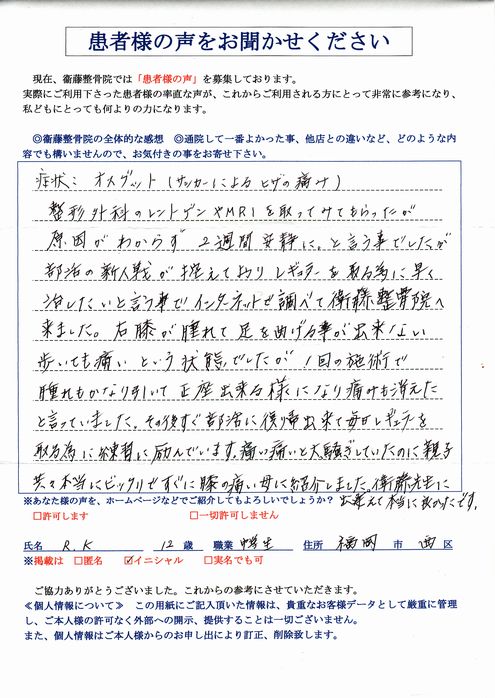 患者様の声をお聞かせください
現在、衞藤整骨院では「患者様の声」を募集しております。
実際にご利用下さった患者様の率直な声が、これからご利用される方にとって非常に参考になり、
私どもにとっても何よりの力になります。
◎衞藤整骨院の全体的な感想 ◎通院して一番よかった事、他店との違いなど、どのような内
容でも構いませんので、お気付きの事をお寄せ下さい。
症状: オスグット(サッカーによるヒザの痛み)
整形外科のレントゲンやMRIを取ってみてもらったが
原因がわからず 2週間安静に。と言う事でしたが
部活の新人戦が控えており レギュラーを取る為に早く
治したいと言う事で インターネットで調べて衞藤整骨院へ
来ました。右膝が腫れて足を曲げる事が出来ない
歩いても痛い という状態でしたが 1回の施術で
腫れもかなり引いて 正座出来る様になり痛みも消えた
と言っていました。その後すぐ部活に復帰出来て毎日レギュラーを
取る為に練習に励んでいます。痛い痛いと大騒ぎしていたのに親子
共々本当にビックリですぐに膝の痛い母に紹介しました。衞藤先生に
出逢えて本当に良かったです。
※あなた様の声を、ホームページなどでご紹介してもよろしいでしょうか？
□許可します □一切許可しません
氏名 R.K 12歳 職業 中学生 住所 福岡 市 西 区
※掲載は □匿名 ☑イニシャル □実名でも可
ご協力ありがとうございました。これからの参考にさせていただきます。
≪個人情報について≫ この用紙にご記入頂いた情報は、貴重なお客様データとして厳重に管理
し、ご本人様の許可なく外部への開示、提供することは一切ございません。
また、個人情報はご本人様からのお申し出により訂正、削除致します。